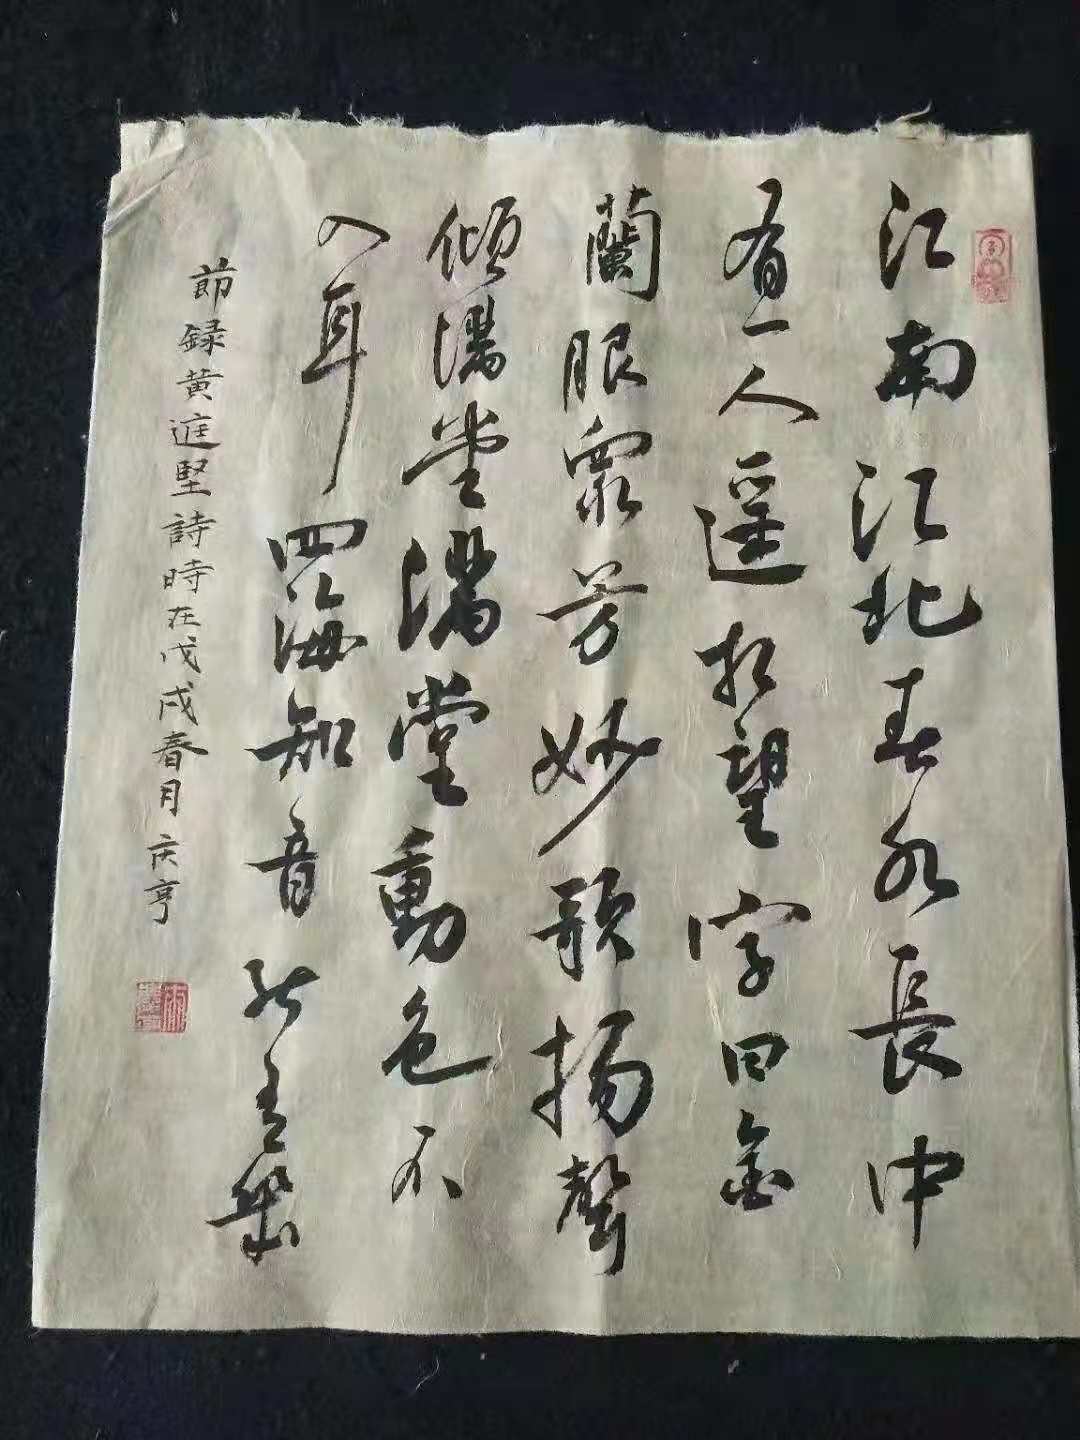 江南江北春水長中
有一人遥相望字曰金
蘭服衆芳妙歌揚聲
傾滿堂滿堂動色不
入耳四海知音能有幾
節録黄庭堅詩時在戊戌春月庆亨